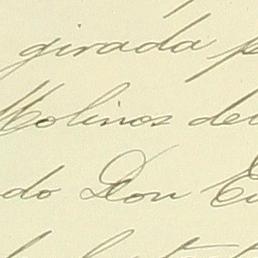 girada p
Molinos del
do Don E